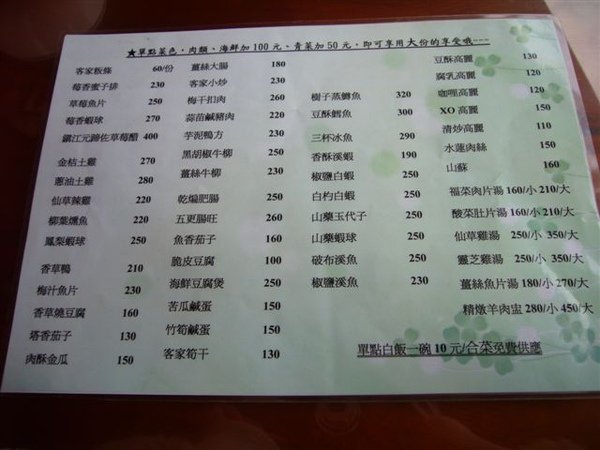 ★單點菜色，肉類、海鮮加100元、青菜加50元，即可享用大份的享受哦---
客家粄條 60/份
莓香蜜子排 230
草莓魚片 250
莓香蝦球 270
鎮江元蹄佐草莓醋 400
金桔土雞 270
蔥油土雞 280
仙草辣雞 220
柳葉燻魚 220
鳳梨蝦球 250
香草鴨 210
梅汁魚片 230
香草燒豆腐 160
塔香茄子 130
肉酥金瓜 150
薑絲大腸 180
客家小炒 230
梅干扣肉 260
蒜苗鹹豬肉 220
芋泥鴨方 230
黑胡椒牛柳 250
薑絲牛柳 230
乾煸肥腸 250
五更腸旺 260
魚香茄子 160
脆皮豆腐 100
海鮮豆腐煲 250
苦瓜鹹蛋 150
竹筍鹹蛋 150
客家筍干 130
樹子蒸鱈魚 320
豆酥鱈魚 300
三杯冰魚 290
香酥溪蝦 190
椒鹽白蝦 250
白杓白蝦 250
山藥玉代子 250
山藥蝦球 250
破布溪魚 250
椒鹽溪魚 230
豆酥高麗 130
腐乳高麗 120
咖哩高麗 120
XO高麗 150
清炒高麗 110
水蓮肉絲 150
山蘇 160
福菜肉片湯 160/小 210/大
酸菜肚片湯 160/小 210/大
仙草雞湯 250/小 350/大
靈芝雞湯 250/小 350/大
薑絲魚片湯 180/小 270/大
精燉羊肉盅 280/小 450/大
單點白飯一碗10元/合菜免費供應